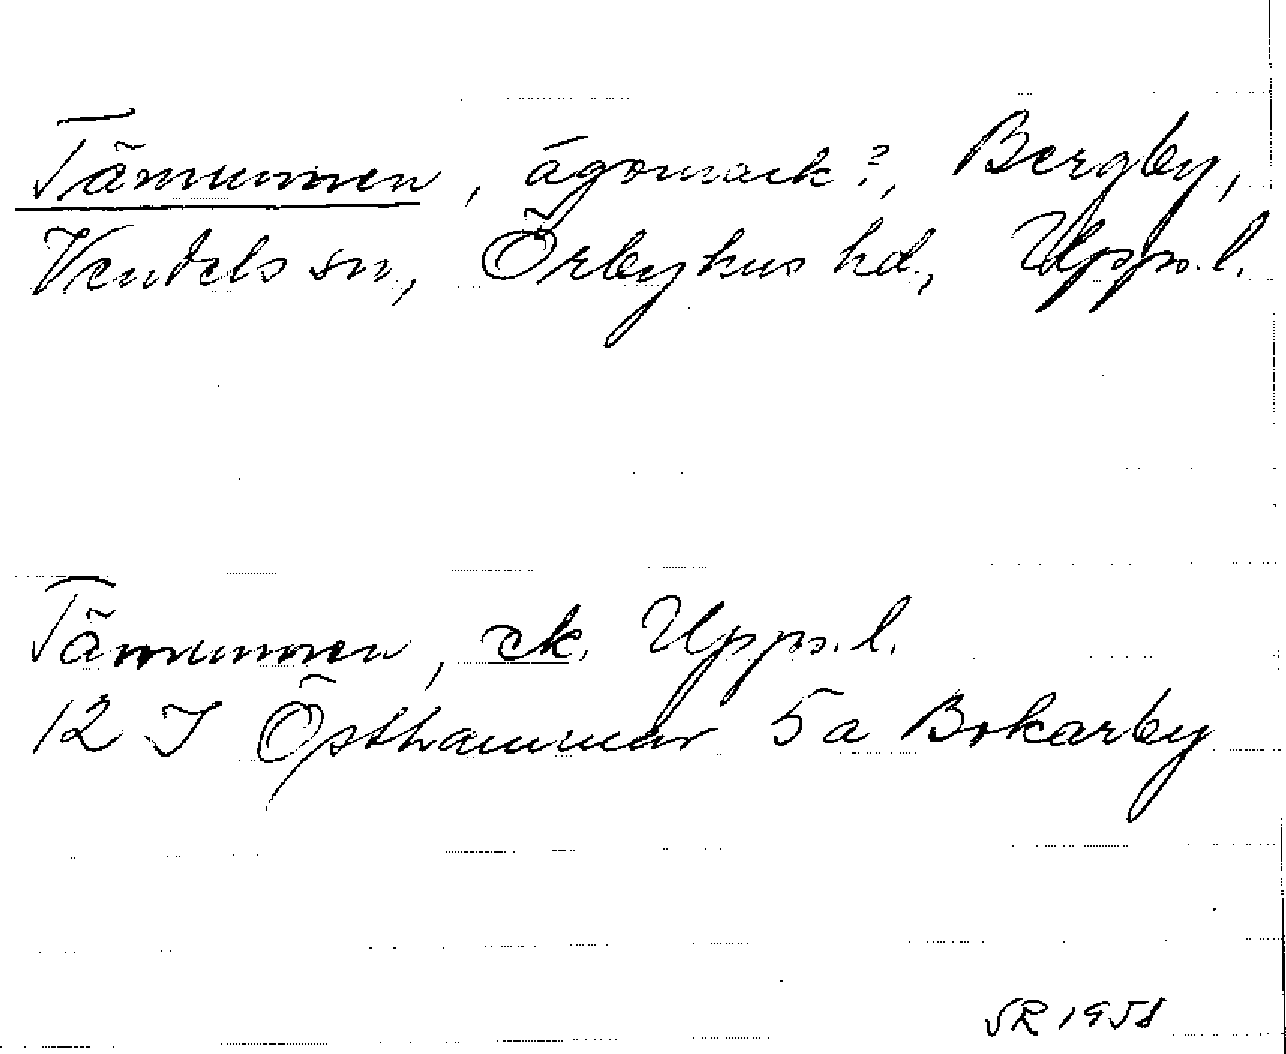 Tämunnen, ägomark?, Bergby,
Vendels sn, Örbyhus hd, Upps.l.
Tämunnen, ek. Upps.l.
12 I Östhammar 5a Bokarby
SR 1958